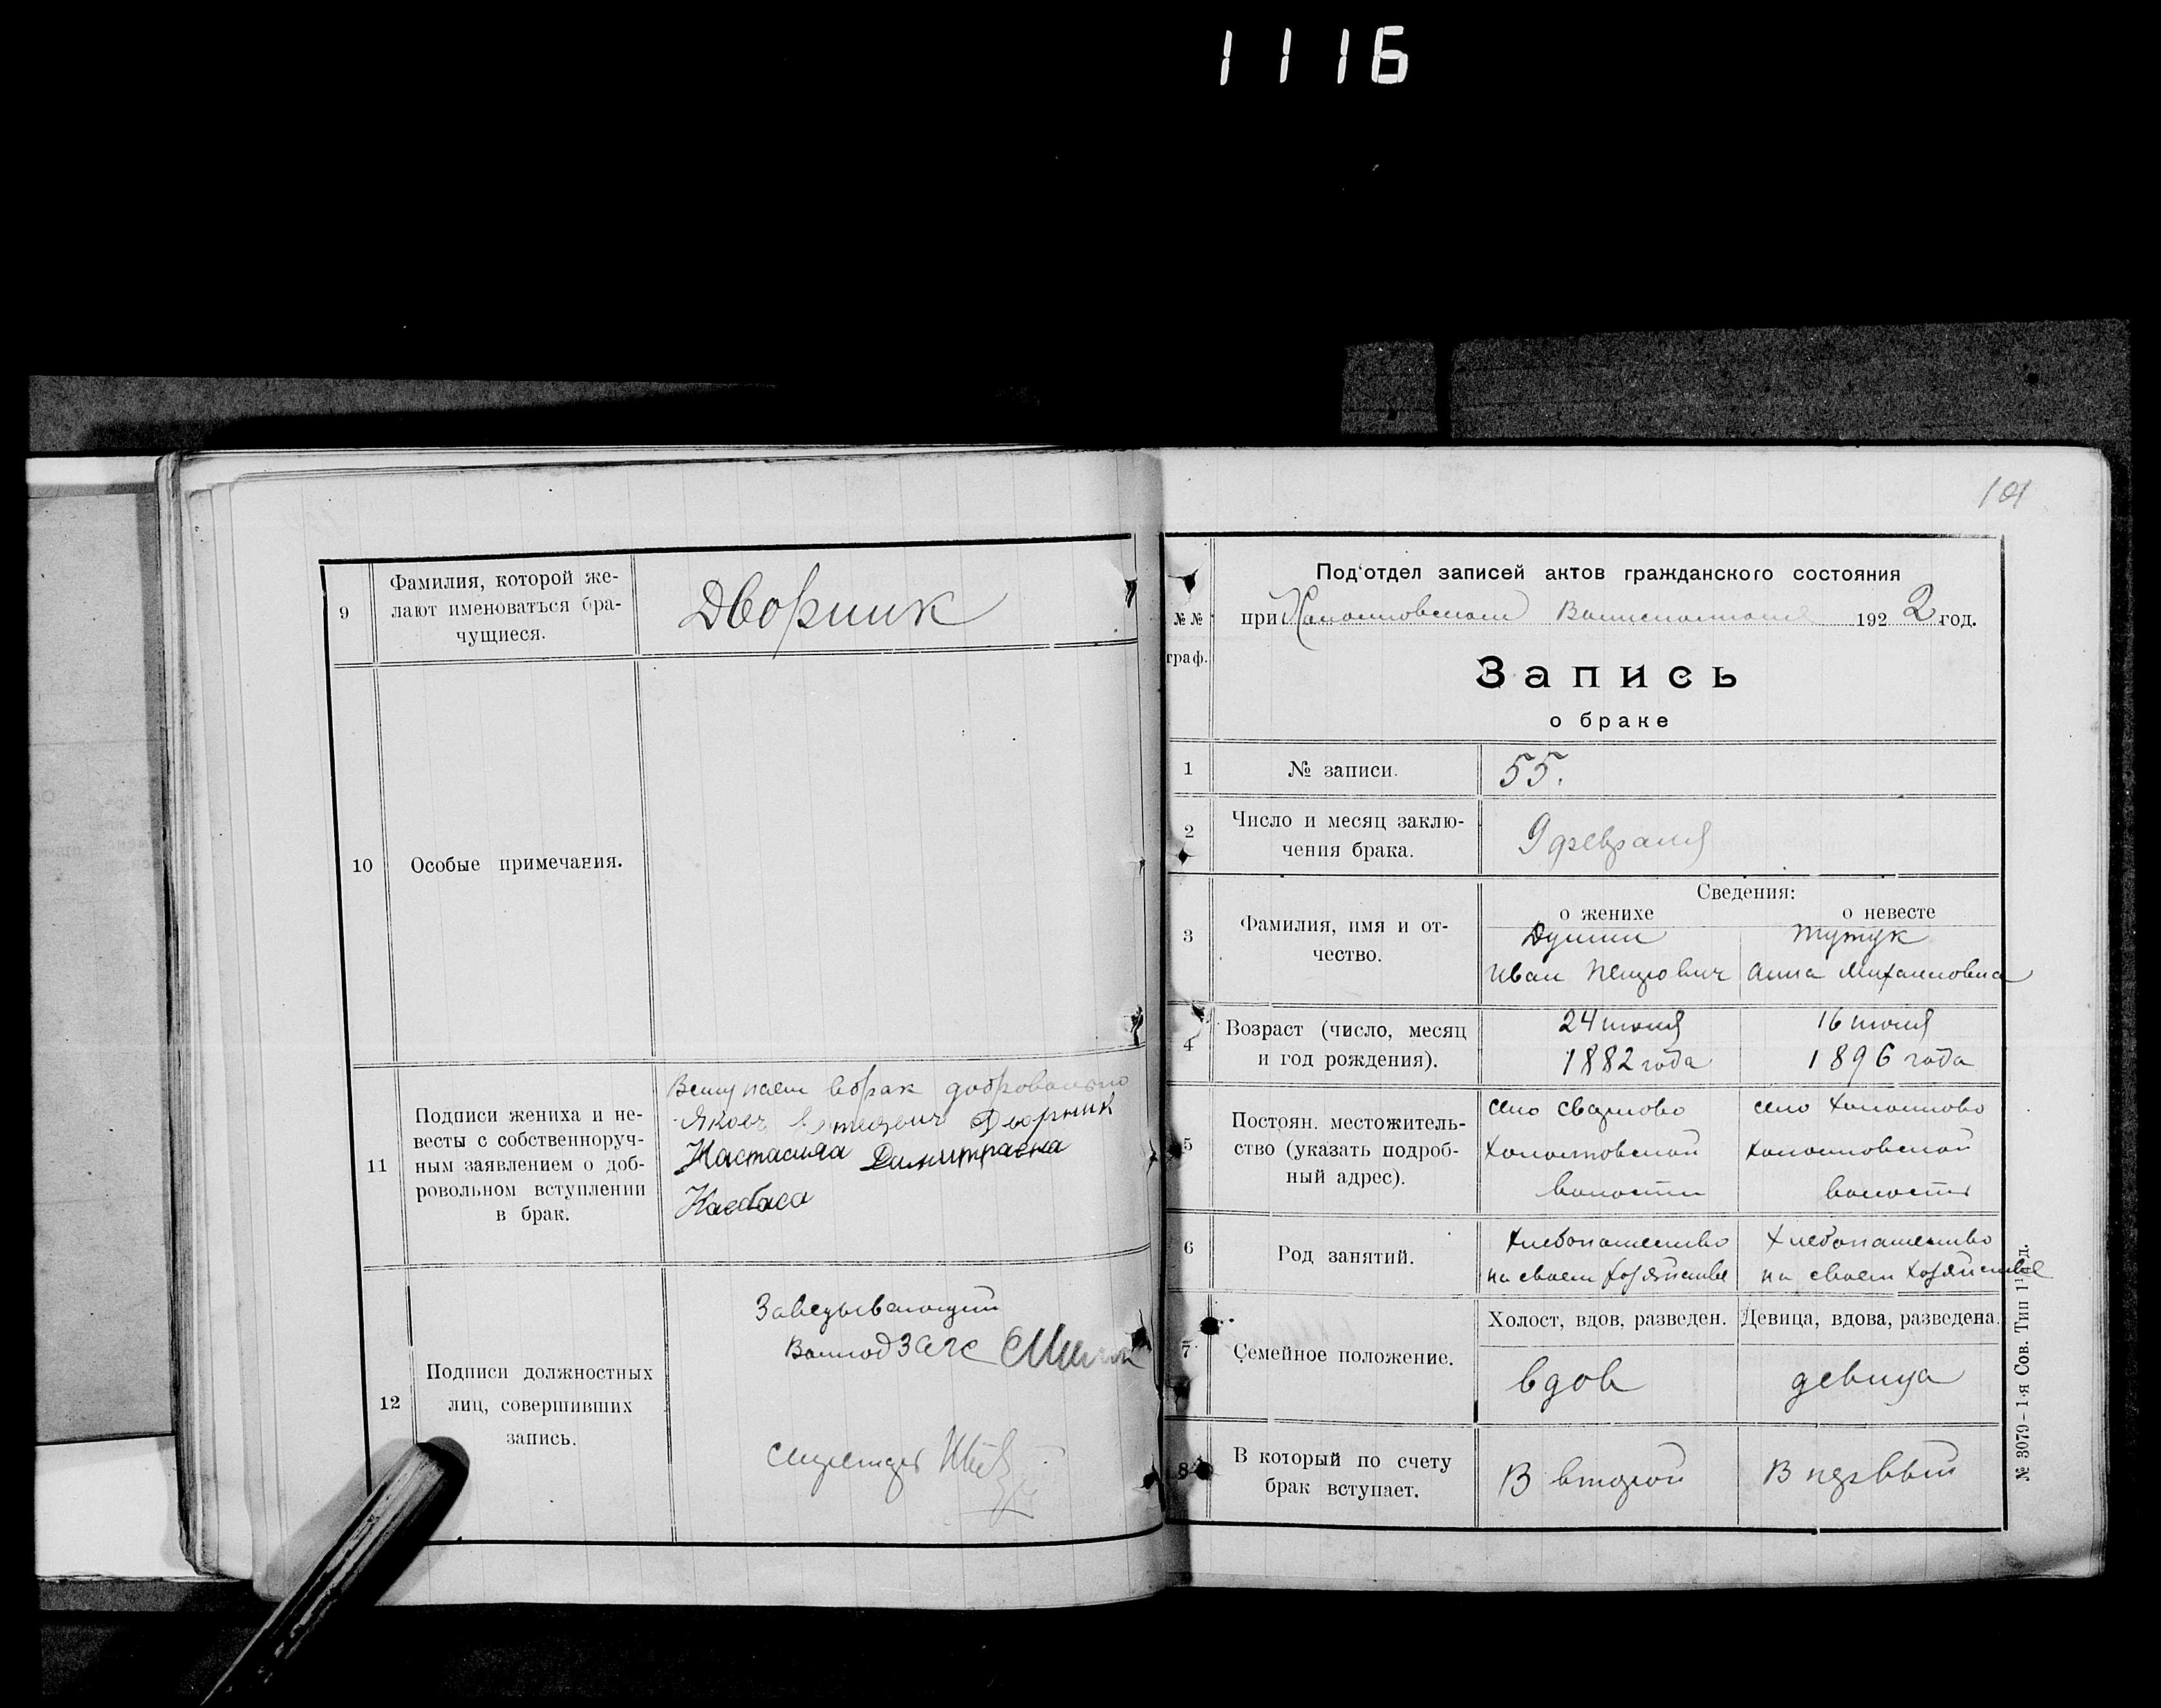 1116
101
9
Фамилия, которой же-
лают именоваться бра-
чущиеся.
Дворник
10
Особые примечания.
11
Подписи жениха и не-
весты с собственноруч-
ным заявлением о доб-
ровольном вступлении
в брак.
Вступаем в брак добровольно
Яков Дворник
Настасия
12
Подписи должностных
лиц, совершивших
запись.
Заведывающий
секретарь
№№
граф.
Под'отдел записей актов гражданского состояния
при 1922 год.
Запись
о браке
1
№ записи.
55.
2
Число и месяц заклю-
чения брака.
9 февраля
3
Фамилия, имя и от-
чество.
Сведения:
о женихе
о невесте
Иван Петрович
Тутук
Анна Михаиловна
4
Возраст (число, месяц
и год рождения).
24
1882 года
16
1896 года
5
Постоян. местожитель-
ство (указать подроб-
ный адрес).
село
волости
село
волости
6
Род занятий.
Хлебопашество
на своем хозяйстве
Хлебопашество
на своем хозяйстве
7
Семейное положение.
Холост, вдов, разведен.
Девица, вдова, разведена.
вдов
девица
8
В который по счету
брак вступает.
В второй
В первый
№ 3079-1-я Сов. Тип